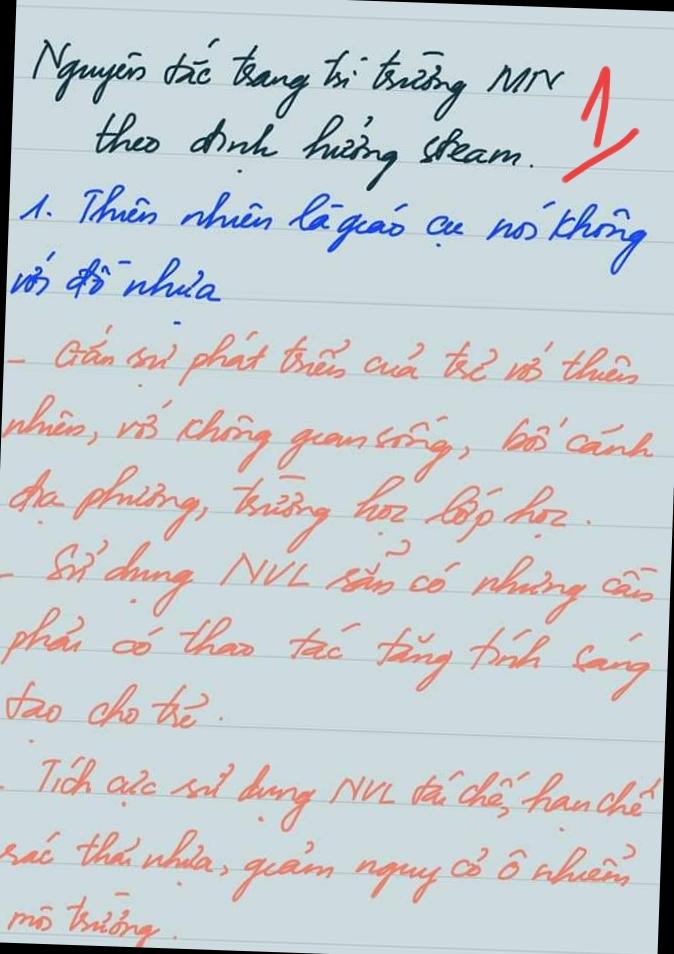 Nguyên tắc trang trí trường MN 1
theo định hướng steam.
1. Thiên nhiên là giáo cụ nói không
với đồ nhựa
- Gắn sự phát triển của trẻ với thiên
nhiên, với không gian sống, bối cảnh
địa phương, trường học lớp học.
- Sử dụng NVL sẵn có nhưng cần
phải có thao tác tăng tính sáng
tạo cho trẻ.
- Tích cực sử dụng NVL tái chế, hạn chế
rác thải nhựa, giảm nguy cơ ô nhiễm
môi trường.